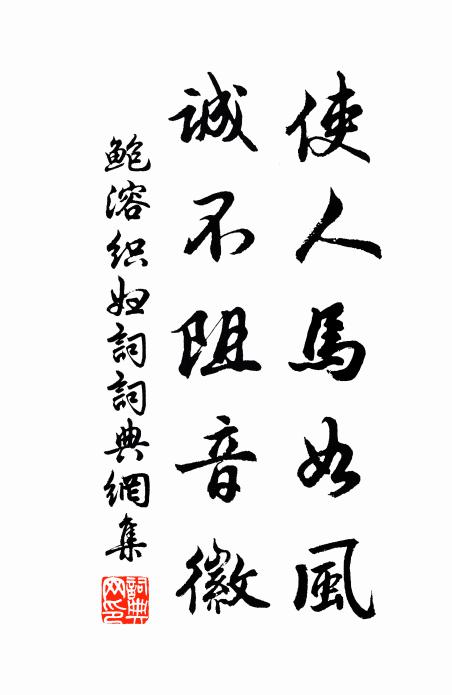 使人馬如風
誠不阻音徽
鲍溶织妇詞詞典網集
詞典網印